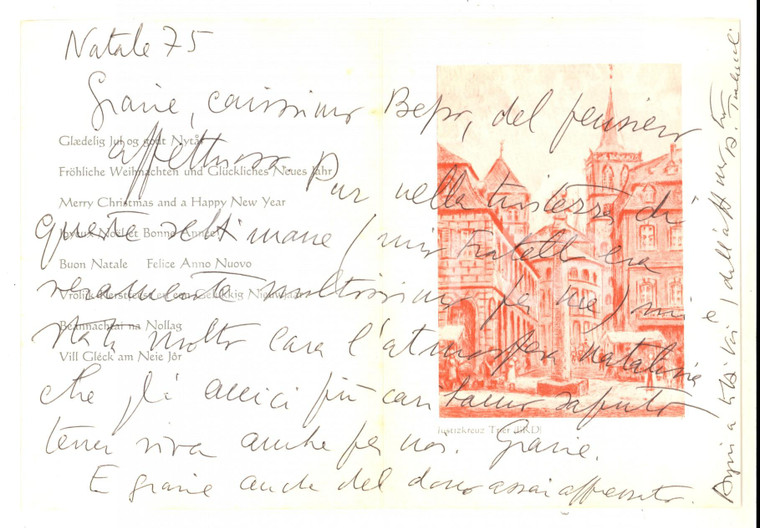 Natale 75
Grazie, carissimo Bepo, del pensiero
affettuoso. Pur nella tristezza di
queste settimane (mio fratello era
veramente moltissimo per me) mi è
stata molto cara l'atmosfera natalizia
che gli amici più cari hanno saputo
tener viva anche per noi. Grazie.
E grazie anche del dono assai apprezzato.
Glædelig Jul og godt Nytår
Fröhliche Weihnachten und Glückliches Neues Jahr
Merry Christmas and a Happy New Year
Joyeux Noël et Bonne Année
Buon Natale Felice Anno Nuovo
Vrolijk Kerstfeest en een Gelukkig Nieuwjaar
Beannachtaí na Nollag
Vill Gléck am Neie Jôr
Justizkreuz Trier (BRD)